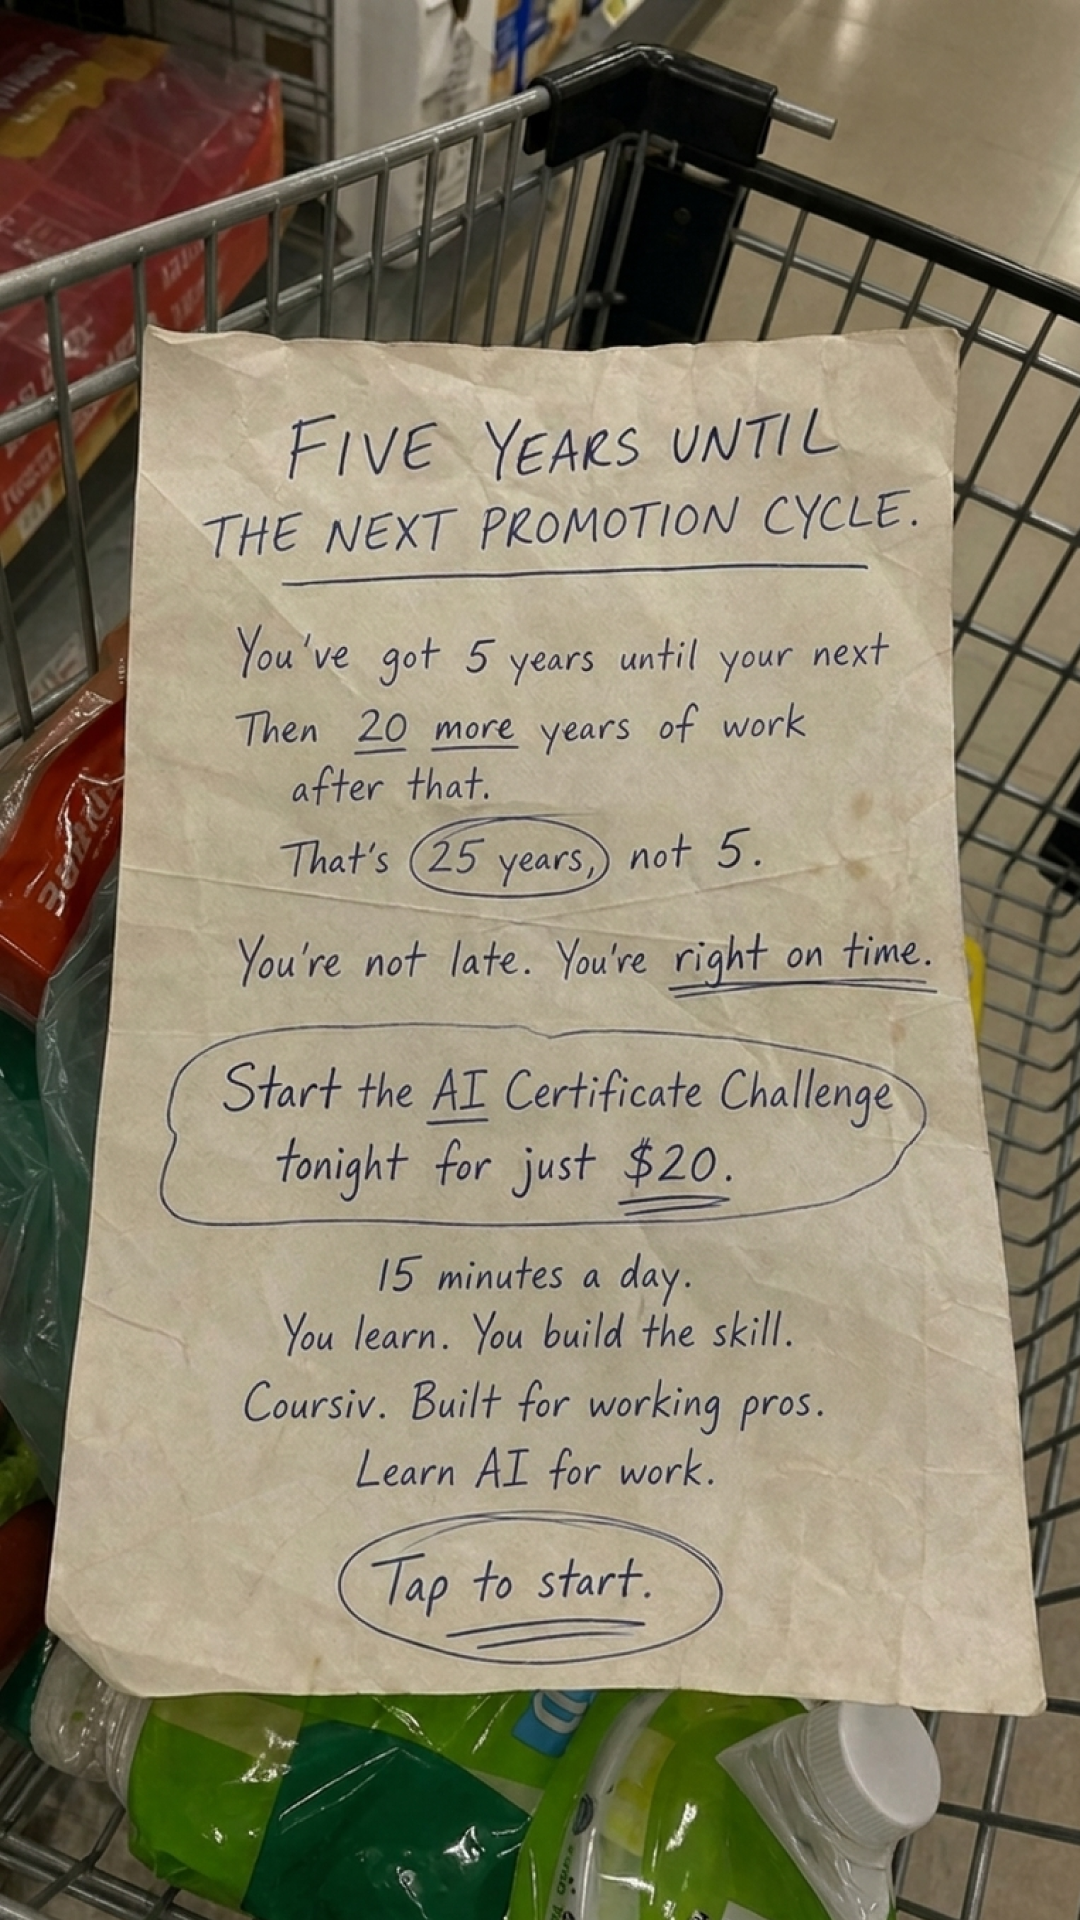 FIVE YEARS UNTIL
THE NEXT PROMOTION CYCLE.
You've got 5 years until your next
Then 20 more years of work
after that.
That's 25 years, not 5.
You're not late. You're right on time.
Start the AI Certificate Challenge
tonight for just $20.
15 minutes a day.
You learn. You build the skill.
Coursiv. Built for working pros.
Learn AI for work.
Tap to start.